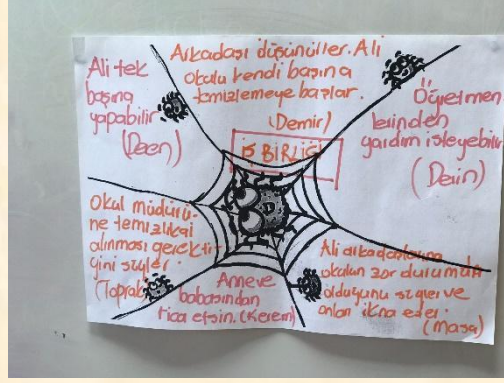 Ali tek
başına
yapabilir
(Deen)
Arkadaşı düşünüller. Ali
okulu kendi başına
temizlemeye başlar.
(Demir)
İŞBİRLİĞİ
Öğretmen
lerinden
yardım isteyebilir
(Derin)
Okul müdürü-
ne temizlikçi
alınması gerekti-
ğini söyler.
(Toprak)
Anneve
babasından
rica etsin. (Kerem)
Ali arkadaşlarına
okulun zor durumda
olduğunu söyler ve
onları ikna eder.
(Masa)